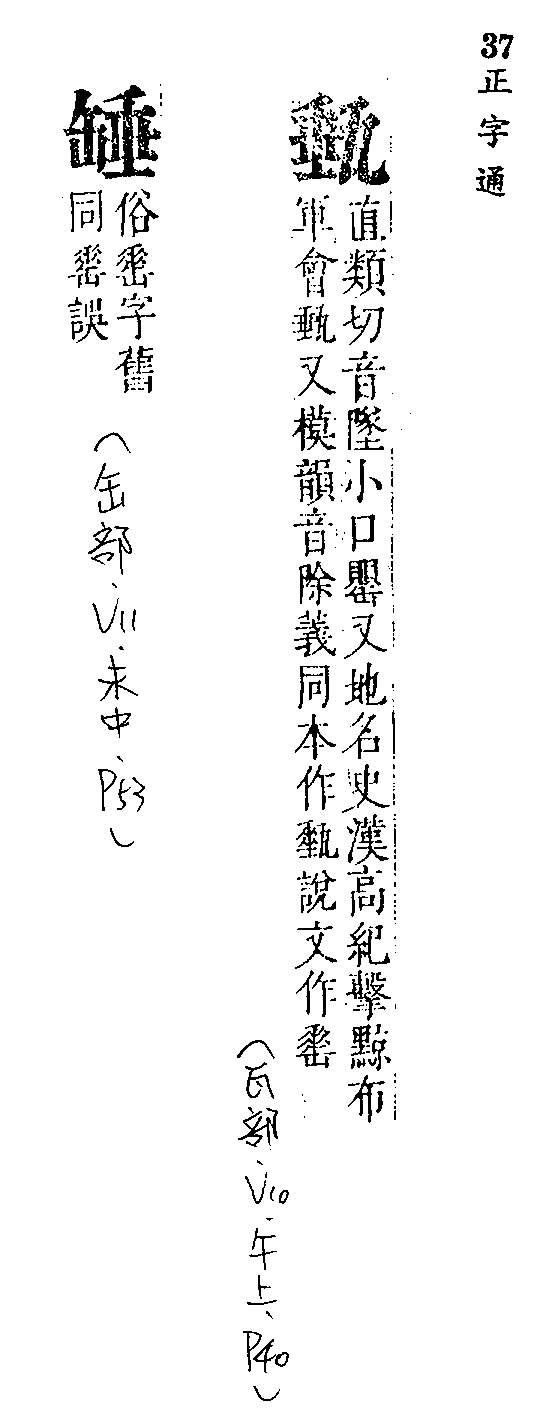 37正字通
甀
直類切音墜小口罌又地名史漢高紀擊黥布
軍會甀又模韻音除義同本作甀說文作
(瓦部、V10.午上、P40)
俗字舊
同誤
(缶部、V11.未中、P53)